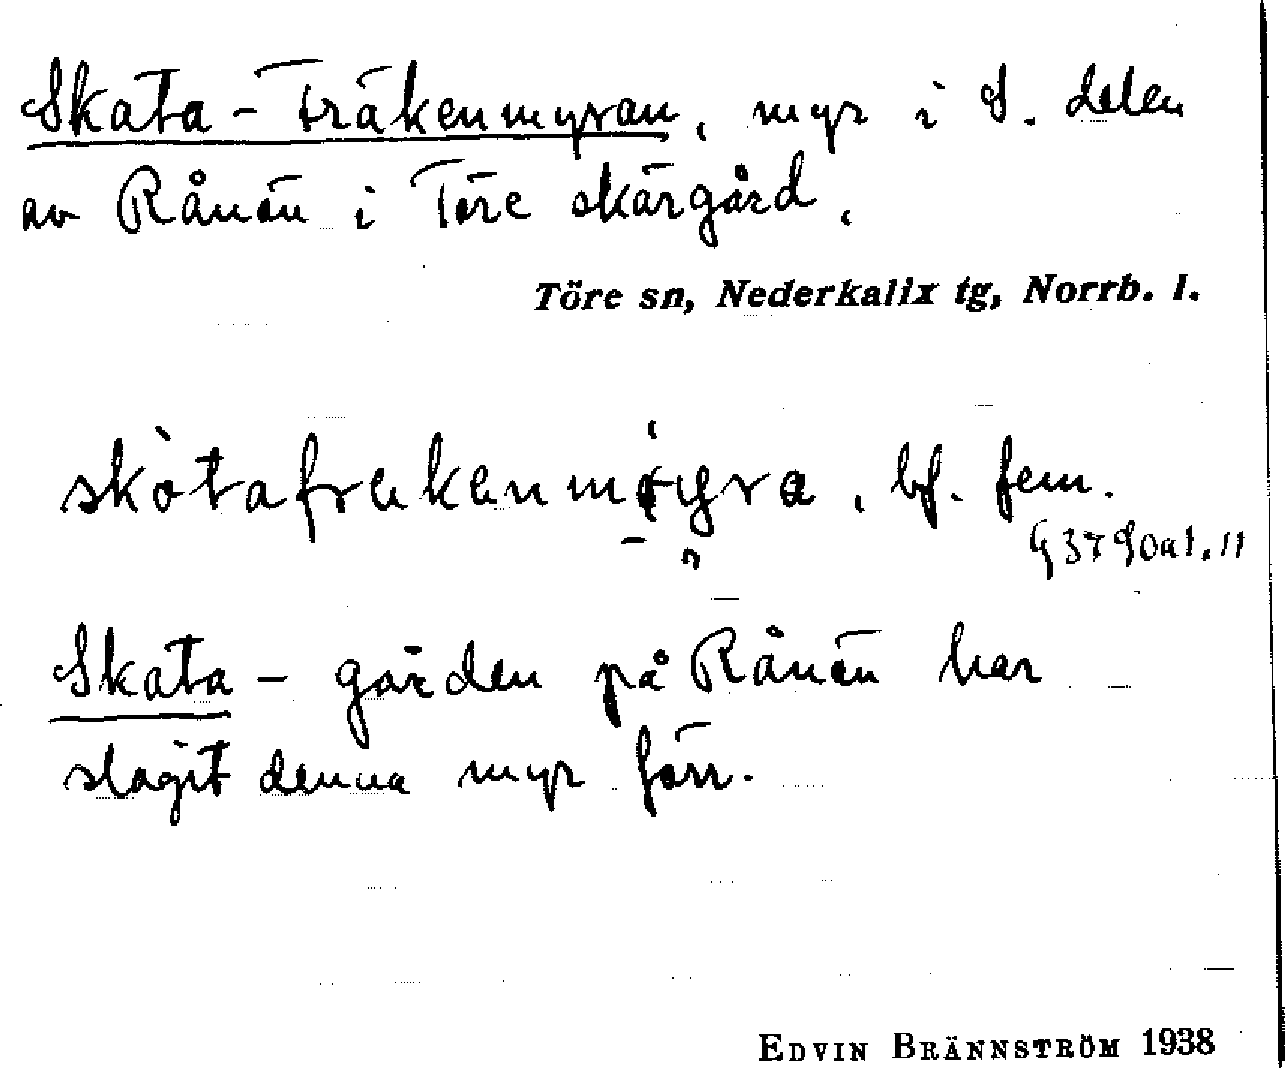 Skata-Fräkenmyran, myr i S. delen
av Rånön i Töre skärgård.
Töre sn, Nederkalix tg, Norrb. l.
bf. fem.
Skata-gården på Rånön har
slagit denna myr förr.
EDVIN BRÄNNSTRÖM 1938